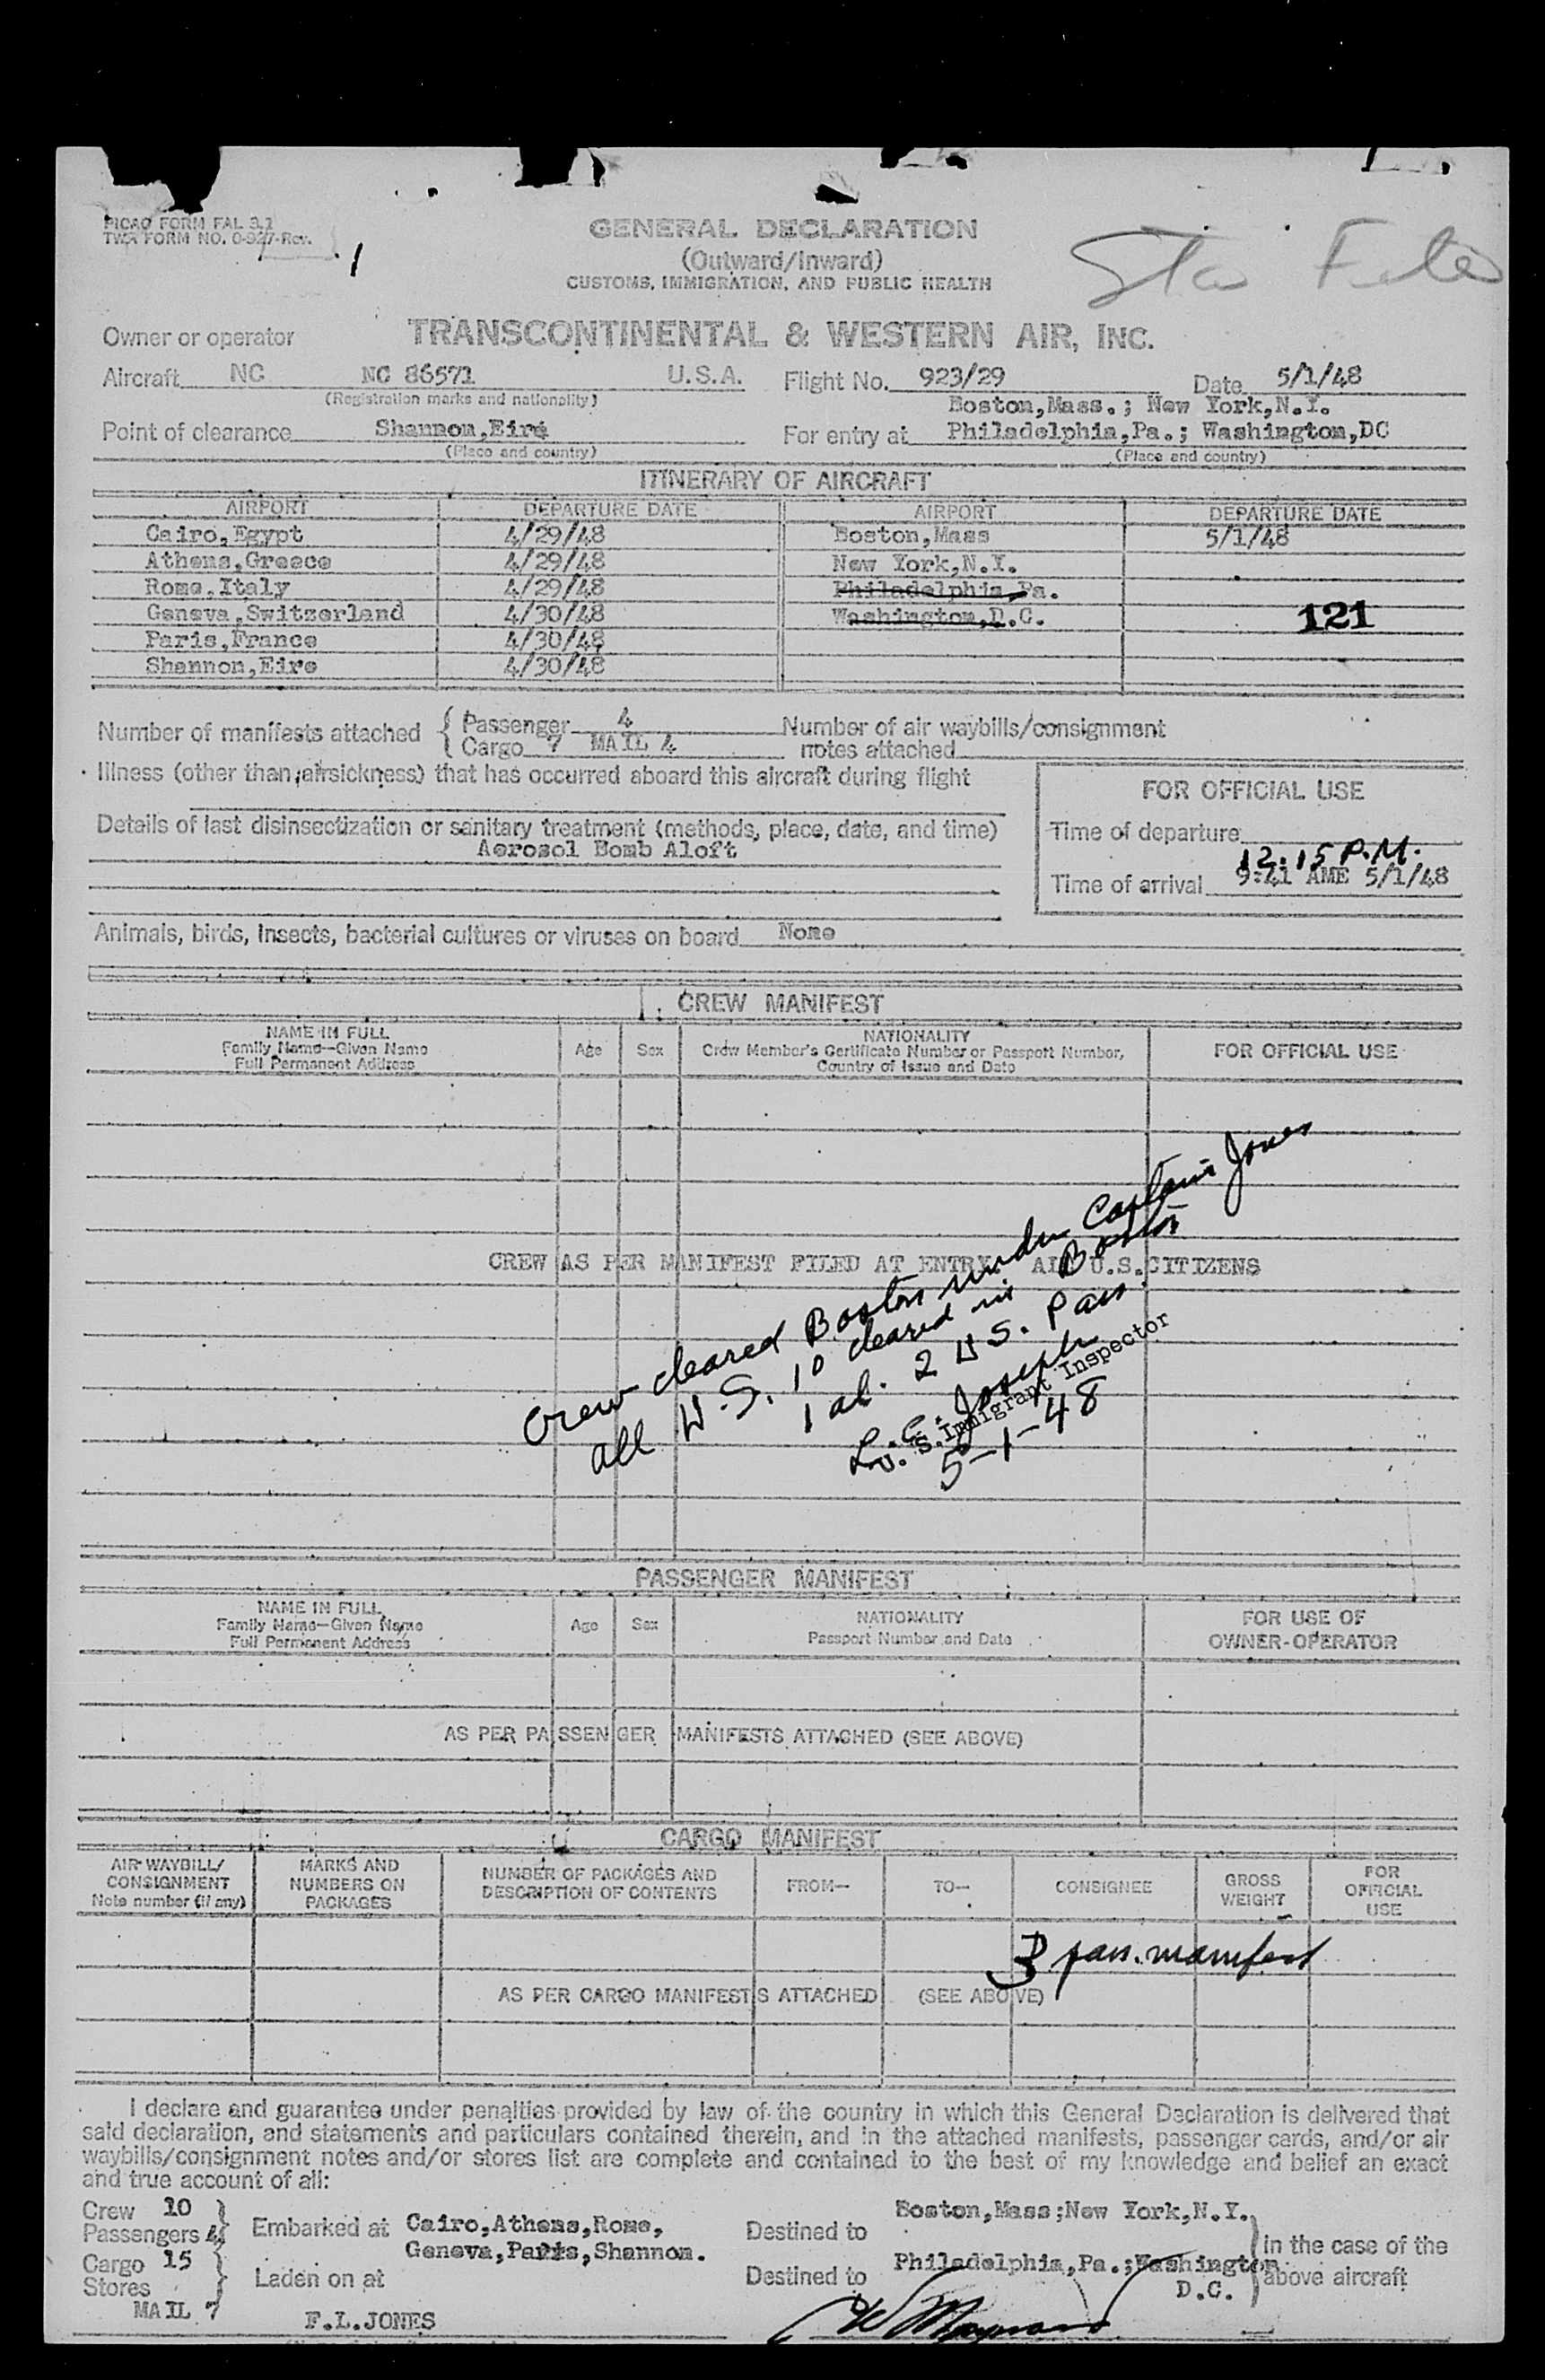 PICAO FORM FAL 3.1
TWA FORM NO. 0-927-Rev.
GENERAL DECLARATION
(Outward/Inward)
CUSTOMS, IMMIGRATION, AND PUBLIC HEALTH
Owner or operator TRANSCONTINENTAL & WESTERN AIR, INC.
Aircraft NC NC 86571 U.S.A. Flight No. 923/29 Date 5/1/48
(Registration marks and nationality)
Boston,Mass.; New York,N.Y.
Point of clearance Shannon,Eire For entry at Philadelphia,Pa.; Washington,DC
(Place and country) (Place and country)
ITINERARY OF AIRCRAFT
AIRPORT DEPARTURE DATE AIRPORT DEPARTURE DATE
Cairo,Egypt 4/29/48 Boston,Mass 5/1/48
Athens,Greece 4/29/48 New York,N.Y.
Rome,Italy 4/29/48 Philadelphia,Pa.
Geneva,Switzerland 4/30/48 Washington,D.C. 121
Paris,France 4/30/48
Shannon,Eire 4/30/48
Number of manifests attached { Passenger 4 Number of air waybills/consignment
Cargo 7 MAIL 4 notes attached
Illness (other than airsickness) that has occurred aboard this aircraft during flight
FOR OFFICIAL USE
Details of last disinsectization or sanitary treatment (methods, place, date, and time)
Aerosol Bomb Aloft
Time of departure
12:15 P.M.
Time of arrival 9:41 AME 5/1/48
Animals, birds, insects, bacterial cultures or viruses on board None
CREW MANIFEST
NAME IN FULL
Family Name—Given Name
Full Permanent Address
Age Sex
NATIONALITY
Crew Member's Certificate Number or Passport Number,
Country of Issue and Date
FOR OFFICIAL USE
CREW AS PER MANIFEST FILED AT ENTRY. ALL U.S.CITIZENS
Crew cleared Boston under Captain Jones
all U.S. 10 cleared in Boston
1 al. 2 U S. Pass.
L. C. Joseph
U. S. Immigrant Inspector
5-1-48
PASSENGER MANIFEST
NAME IN FULL
Family Name—Given Name
Full Permanent Address
Age Sex
NATIONALITY
Passport Number and Date
FOR USE OF
OWNER-OPERATOR
AS PER PASSENGER MANIFESTS ATTACHED (SEE ABOVE)
CARGO MANIFEST
AIR WAYBILL/
CONSIGNMENT
Note number (if any)
MARKS AND
NUMBERS ON
PACKAGES
NUMBER OF PACKAGES AND
DESCRIPTION OF CONTENTS
FROM—
TO—
CONSIGNEE
GROSS
WEIGHT
FOR
OFFICIAL
USE
3 pass. manifest
AS PER CARGO MANIFESTS ATTACHED (SEE ABOVE)
I declare and guarantee under penalties provided by law of the country in which this General Declaration is delivered that
said declaration, and statements and particulars contained therein, and in the attached manifests, passenger cards, and/or air
waybills/consignment notes and/or stores list are complete and contained to the best of my knowledge and belief an exact
and true account of all:
Crew 10
Passengers 4
Embarked at Cairo,Athens,Rome,
Geneva,Paris,Shannon.
Destined to Boston,Mass;New York,N.Y.
Cargo 15
Stores
Laden on at
Destined to Philadelphia,Pa.;Washington
D.C.
in the case of the
above aircraft
MAIL 7
F.L.JONES